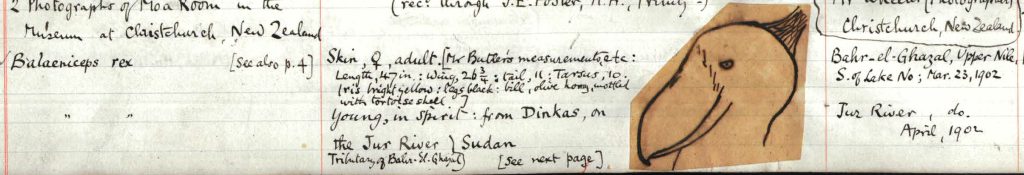 2 Photographs of Moa Room in the
Museum at Christchurch, New Zealand
(rec? through J.E. Foster, M.A., Trinity -)
Mr Wheeler (Photographer)
Christchurch, New Zealand
✓ Balaeniceps rex [See also p. 4]
Skin, ♀, adult. [Mr Butler's measurements, etc:
Length, 47 in: Wing, 26 3/4: tail, 11: Tarsus, 10.
Iris bright yellow: legs black: bill, olive horn, mottled
with tortoise shell]
Bahr-el-Ghazal, Upper Nile,
S. of Lake No; Mar. 23, 1902
" "
Young, in Spirit: from Dinkas, on
the Jur River } Sudan
Tributary of Bahr-El-Ghazal)
[See next page]
Jur River, do.
April, 1902